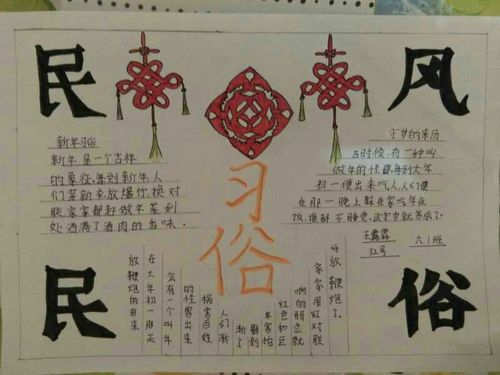 民
风
民
俗
习
俗
新年习俗
新年是一个吉祥
的象征,每到新年人
们等新衣放爆竹,换对
联,家家都赶做年菜,到
处洒满了酒肉的香味。
守岁的来历
古时候,有一种叫
做年的怪兽,每到大年
初一便出来吃人,人们便
在那一晚上躲在家吃年夜
饭,谁都不睡觉,这守岁就
王露霖 六.1班
52号
放鞭炮的由来
在大年初一那天
会有一个叫年
的怪兽出来
祸害百姓
人们渐
渐了
年害怕
红色和巨
响的
家家用红对联
放鞭炮了。